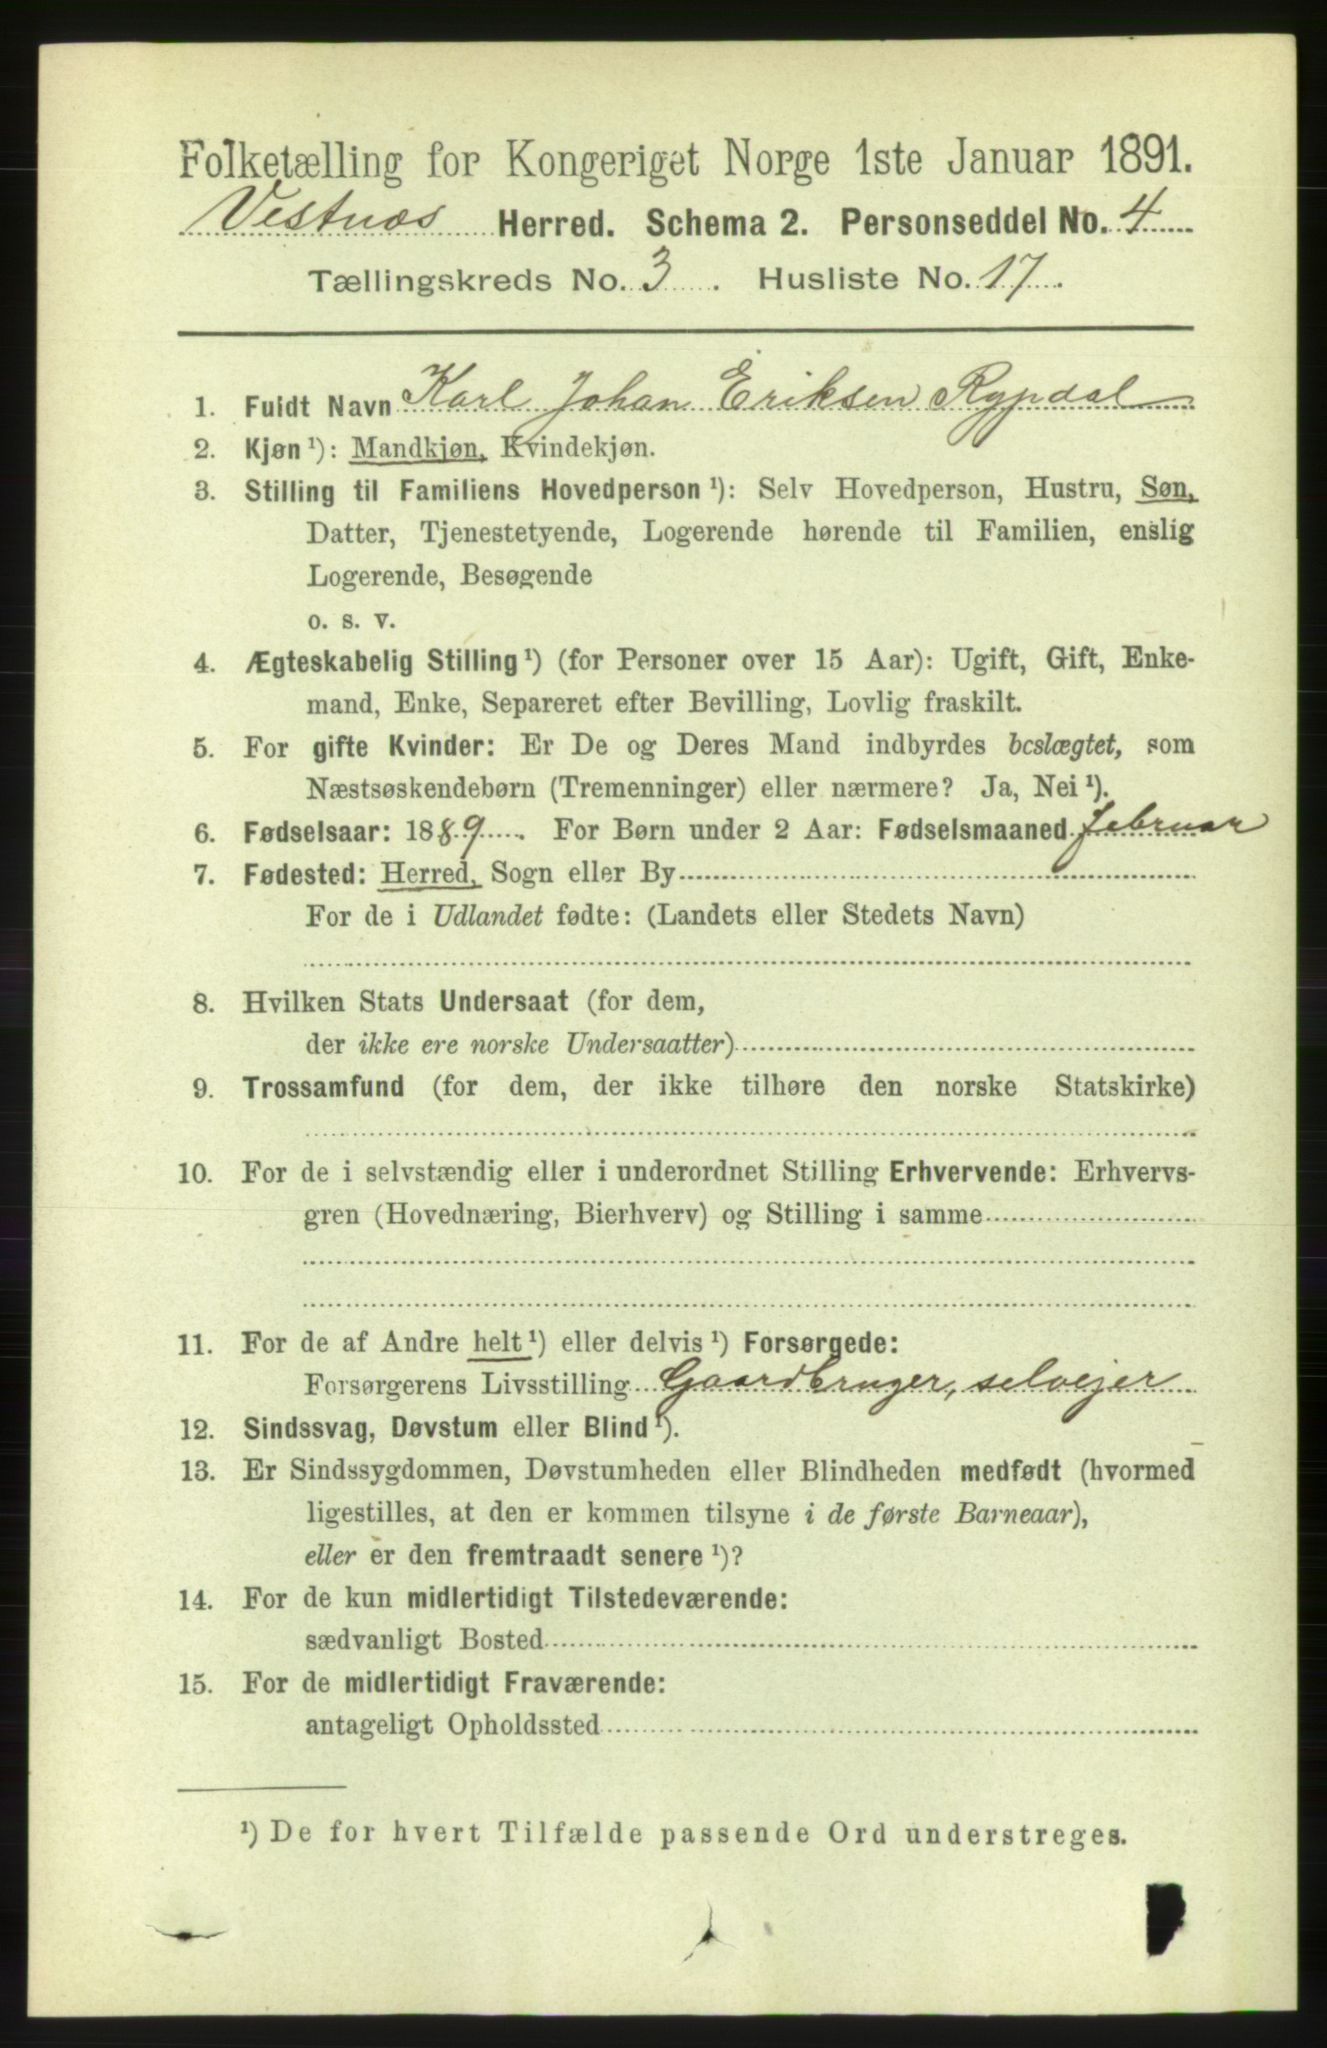 Folketælling for Kongeriget Norge 1ste Januar 1891.
Vestnæs Herred. Schema 2. Personseddel No. 4
Tællingskreds No. 3. Husliste No. 17.
1. Fuldt Navn Karl Johan Eriksen Rypdal
2. Kjøn ¹): Mandkjøn, Kvindekjøn.
3. Stilling til Familiens Hovedperson ¹): Selv Hovedperson, Hustru, Søn,
Datter, Tjenestetyende, Logerende hørende til Familien, enslig
Logerende, Besøgende
o. s. v.
4. Ægteskabelig Stilling ¹) (for Personer over 15 Aar): Ugift, Gift, Enke-
mand, Enke, Separeret efter Bevilling, Lovlig fraskilt.
5. For gifte Kvinder: Er De og Deres Mand indbyrdes beslægtet, som
Næstsøskendebørn (Tremenninger) eller nærmere? Ja, Nei ¹).
6. Fødselsaar: 1889. For Børn under 2 Aar: Fødselsmaaned februar
7. Fødested: Herred, Sogn eller By
For de i Udlandet fødte: (Landets eller Stedets Navn)
8. Hvilken Stats Undersaat (for dem,
der ikke ere norske Undersaatter)
9. Trossamfund (for dem, der ikke tilhøre den norske Statskirke)
10. For de i selvstændig eller i underordnet Stilling Erhvervende: Erhvervs-
gren (Hovednæring, Bierhverv) og Stilling i samme
11. For de af Andre helt ¹) eller delvis ¹) Forsørgede:
Forsørgerens Livsstilling Gaardbruger, selvejer
12. Sindssvag, Døvstum eller Blind ¹).
13. Er Sindssygdommen, Døvstumheden eller Blindheden medfødt (hvormed
ligestilles, at den er kommen tilsyne i de første Barneaar),
eller er den fremtraadt senere ¹)?
14. For de kun midlertidigt Tilstedeværende:
sædvanligt Bosted
15. For de midlertidigt Fraværende:
antageligt Opholdssted
¹) De for hvert Tilfælde passende Ord understreges.